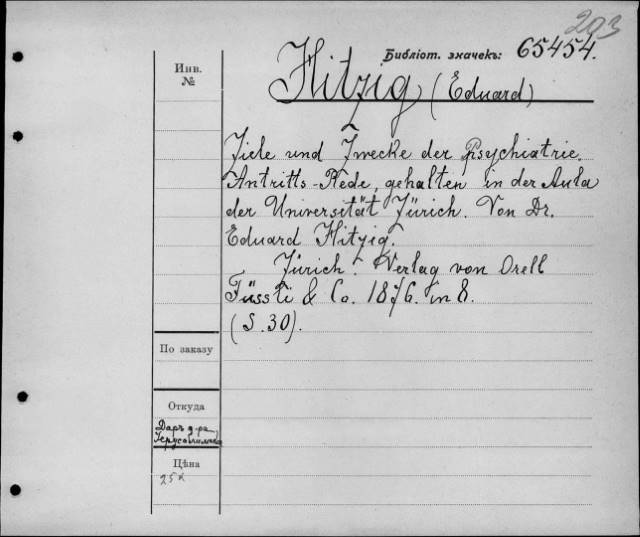 203
Библіот. значекъ: 65454.
Инв.
№
Hitzig (Eduard)
Ziele und Zwecke der Psychiatrie.
Antritts-Rede, gehalten in der Aula
der Universität Zürich. Von Dr.
Eduard Hitzig.
Zürich. Verlag von Orell
Füssli & Co. 1876. in 8.
(S. 30).
По заказу
Откуда
Даръ д-ра
Цѣна
25к